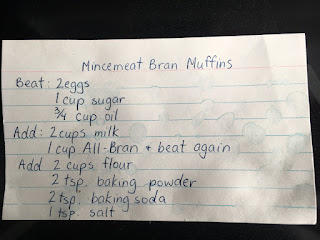 Mincemeat Bran Muffins
Beat: 2 eggs
1 cup sugar
¾ cup oil
Add: 2 cups milk
1 cup All-Bran + beat again
Add 2 cups flour
2 tsp. baking powder
2 tsp. baking soda
1 tsp. salt